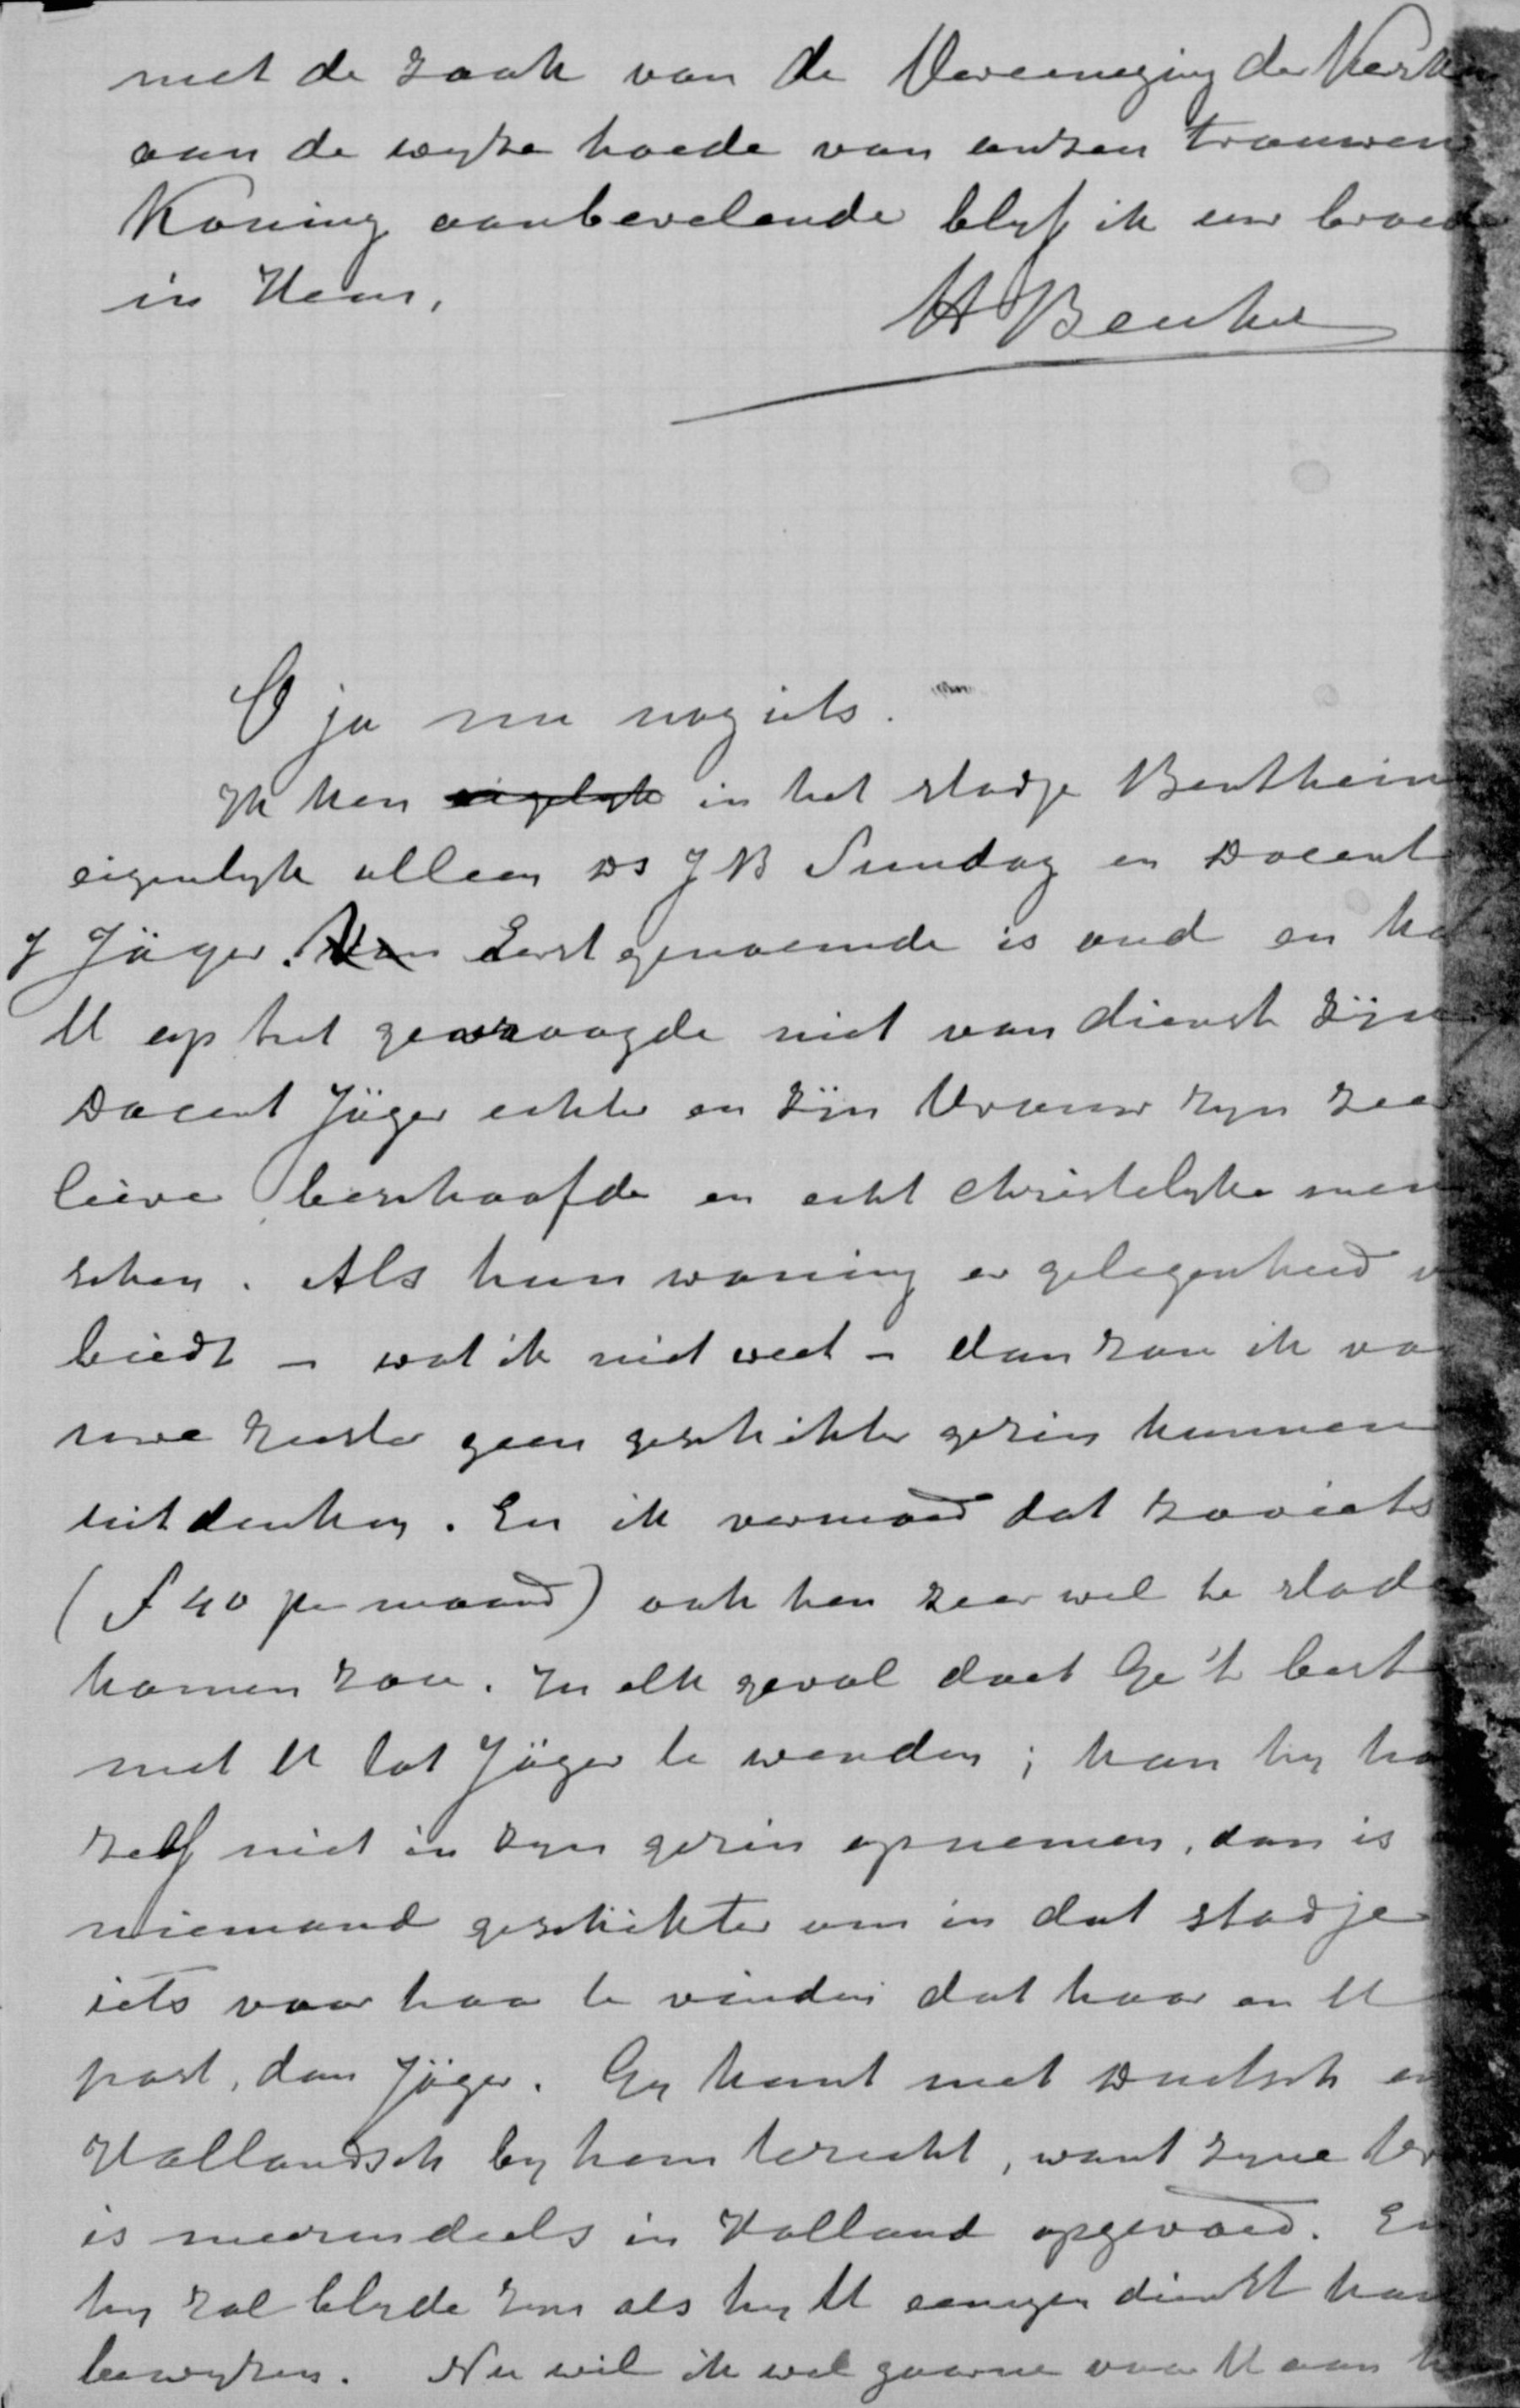 met de zaak van de Vereeniging der Kerken
aan de wyze hoede van onzen trouwen
Koning aanbevelende blyf ik uw broeder
in Hem,
H Beuker
O ja nu nog iets.
Ik ken eigelyk in het stadje Bentheim
eigenlyk alleen Ds J B Sundag en Docent
J Jäger. Van Eerstgenoemde is oud en kan
U op het gevraagde niet van dienst zijn
Docent Jäger echter en zijn Vrouw zyn zeer
lieve beschaafde en echt christelyke men
schen. Als hun woning er gelegenheid v
biedt – wat ik niet weet – dan zou ik voor
uwe zuster geen geschikter gezin kunnen
uitdenken. En ik vermoed dat zooiets
(f 40 per maand) ook hen zeer wel te stade
komen zou. In elk geval doet Ge 't best
met U tot Jäger te wenden; kan hy haar
zelf niet in zyn gezin opnemen, dan is
niemand geschikter om in dat stadje
iets voor haar te vinden dat haar en U
past, dan Jäger. Gy kunt met Duitsch en
Hollandsch by hem terecht, want zyne
is meerendeels in Holland opgevoed. En
hy zal blyde zyn als hy U eenigen dienst kan
bewyzen. Nu wil ik wel gaarne voor U aan